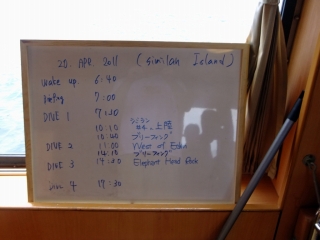 20. APR. 2011 (Similan Island)
wake up. 6:40
7:00
DIVE 1 7:30
10:10 上陸
10:40 ブリーフィング
DIVE 2 11:00 West of Eden
14:10 ブリーフィング
DIVE 3 14:30 Elephant Head Rock
DIVE 4 17:30